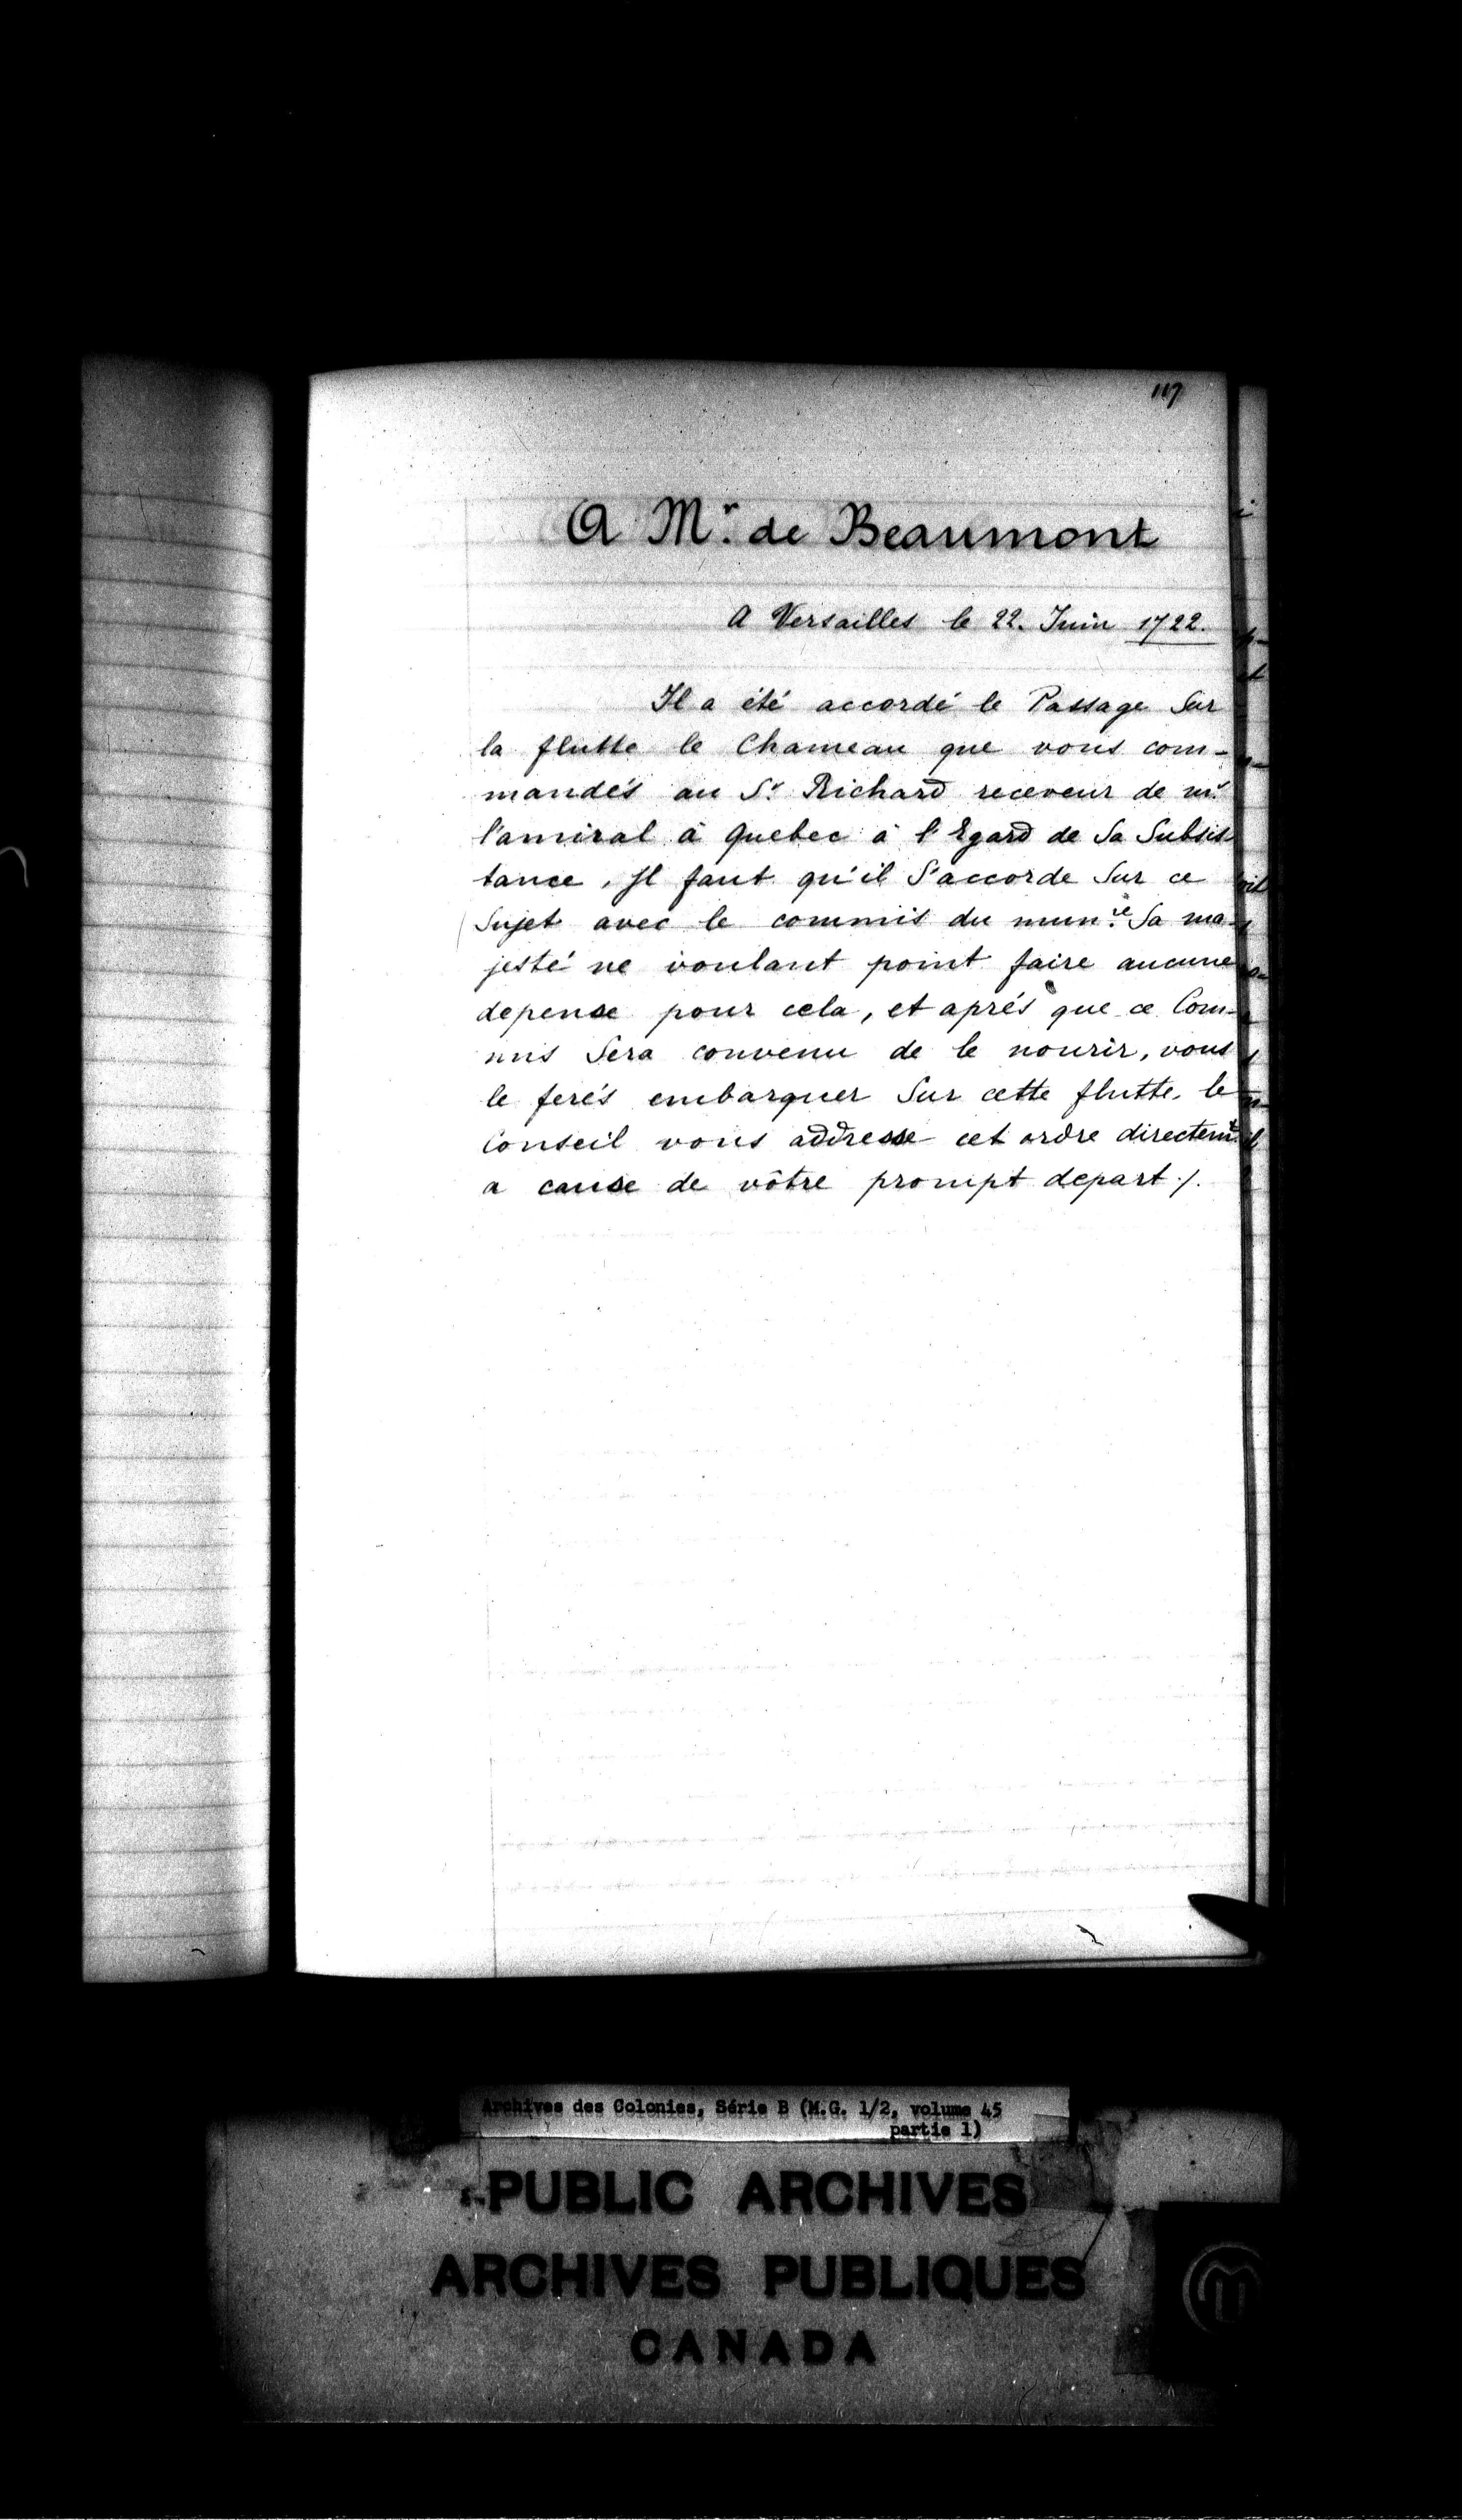 117
A Mr. de Beaumont
A Versailles le 22. Juin 1722.
Il a été accordé le Passage Sur
la flutte le Chameau que vous com-
mandés au Sr. Richard receveur de mr.
l'amiral à Quebec à l'Egard de Sa Subsis
tance, Il faut qu'il S'accorde Sur ce
Sujet avec le commis du munre. Sa ma-
jesté ne voulant point faire aucune
depense pour cela, et aprés que ce Com-
mis Sera convenu de le nourir, vous
le ferés embarquer Sur cette flutte. le
Conseil vous addresse cet ordre directemt.
a cause de vôtre prompt depart ./.
Archives des Colonies, Série B (M.G. 1/2, volume 45
partie 1)
PUBLIC ARCHIVES
ARCHIVES PUBLIQUES
CANADA